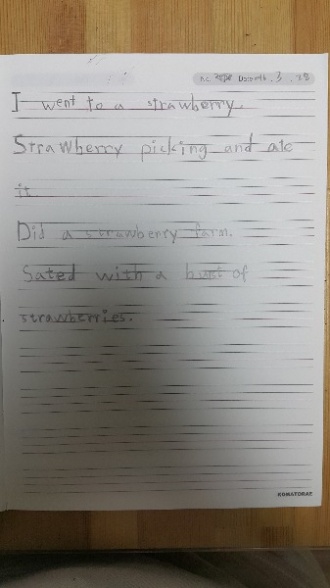 I went to a strawberry.
Strawberry picking and ate
it
Did a strawberry farm.
Sated with a of
strawberries.
KOMATORAE